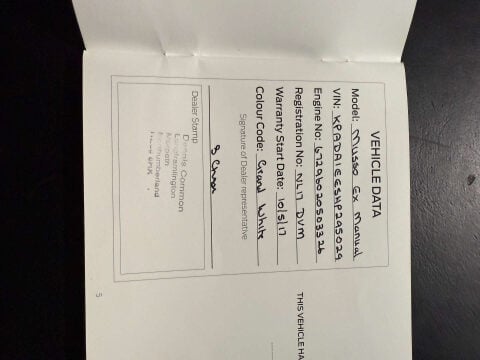 VEHICLE DATA
Model: Musso Ex Manual
VIN: KPADA1EGSHP295029
Engine No: 67296020503326
Registration No: NL17 DVM
Warranty Start Date: 10/5/17
Colour Code: Grand White
Signature of Dealer representative
Dealer Stamp
Common
Longframlington
Morpeth
Northumberland
5
THIS VEHICLE HA